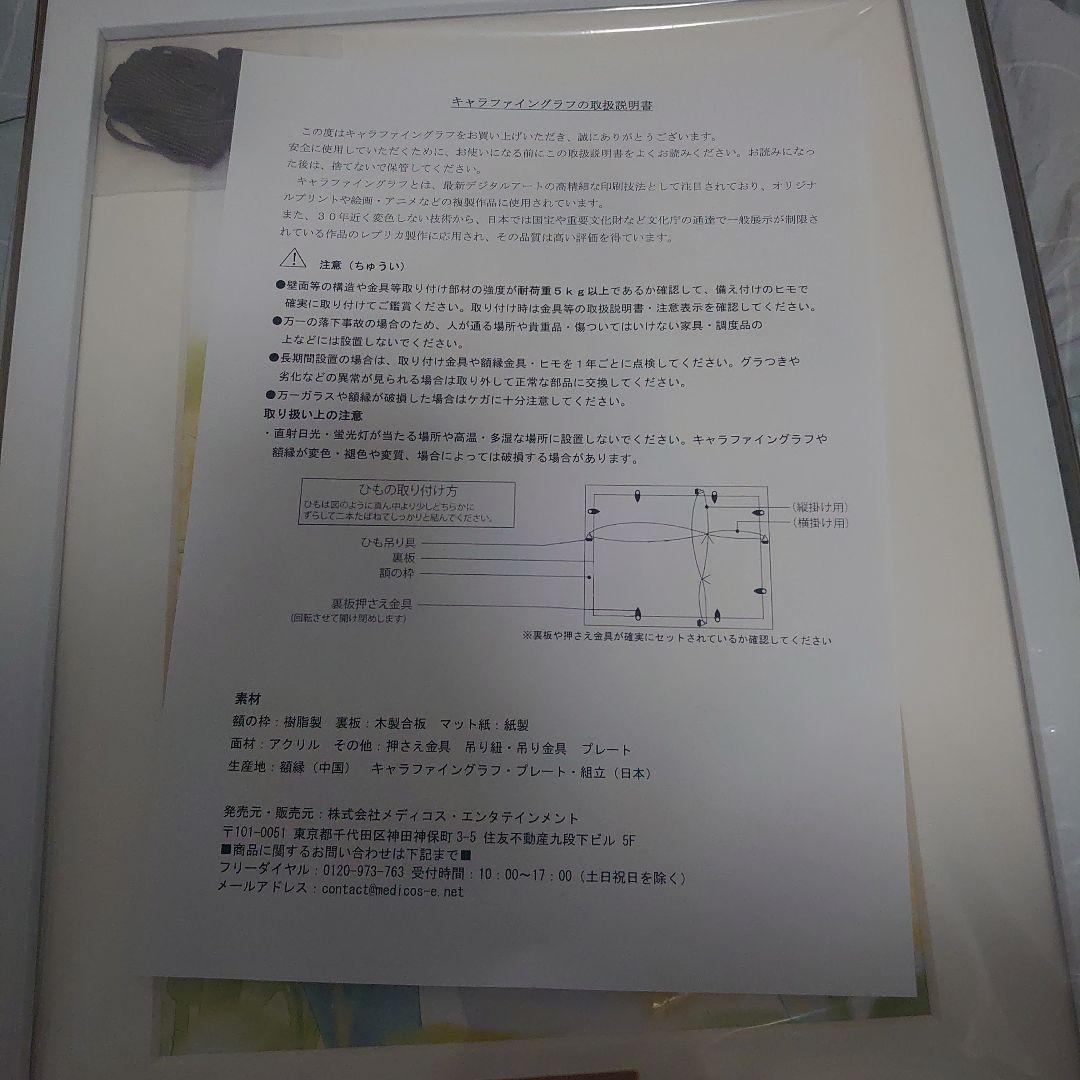 キャラファイングラフの取扱説明書
この度はキャラファイングラフをお買い上げいただき、誠にありがとうございます。
安全に使用していただくために、お使いになる前にこの取扱説明書をよくお読みください。お読みになっ
た後は、捨てないで保管してください。
キャラファイングラフとは、最新デジタルアートの高精細な印刷技法として注目されており、オリジナ
ルプリントや絵画・アニメなどの複製作品に使用されています。
また、３０年近く変色しない技術から、日本では国宝や重要文化財など文化庁の通達で一般展示が制限さ
れている作品のレプリカ製作に応用され、その品質は高い評価を得ています。
注意（ちゅうい）
●壁面等の構造や金具等取り付け部材の強度が耐荷重５ｋｇ以上であるか確認して、備え付けのヒモで
確実に取り付けてご鑑賞ください。取り付け時は金具等の取扱説明書・注意表示を確認してください。
●万一の落下事故の場合のため、人が通る場所や貴重品・傷ついてはいけない家具・調度品の
上などには設置しないでください。
●長期間設置の場合は、取り付け金具や額縁金具・ヒモを１年ごとに点検してください。グラつきや
劣化などの異常が見られる場合は取り外して正常な部品に交換してください。
●万一ガラスや額縁が破損した場合はケガに十分注意してください。
取り扱い上の注意
・直射日光・蛍光灯が当たる場所や高温・多湿な場所に設置しないでください。キャラファイングラフや
額縁が変色・褪色や変質、場合によっては破損する場合があります。
ひもの取り付け方
ひもは図のように真ん中より少しどちらかに
ずらして二本たばねてしっかりと結んでください。
(縦掛け用)
(横掛け用)
ひも吊り具
裏板
額の枠
裏板押さえ金具
(回転させて開け閉めします)
※裏板や押さえ金具が確実にセットされているか確認してください
素材
額の枠：樹脂製　裏板：木製合板　マット紙：紙製
面材：アクリル　その他：押さえ金具　吊り紐・吊り金具　プレート
生産地：額縁（中国）　キャラファイングラフ・プレート・組立（日本）
発売元・販売元：株式会社メディコス・エンタテインメント
〒101-0051 東京都千代田区神田神保町 3-5 住友不動産九段下ビル 5F
■商品に関するお問い合わせは下記まで■
フリーダイヤル：0120-973-763 受付時間：10：00～17：00（土日祝日を除く）
メールアドレス：contact@medicos-e.net